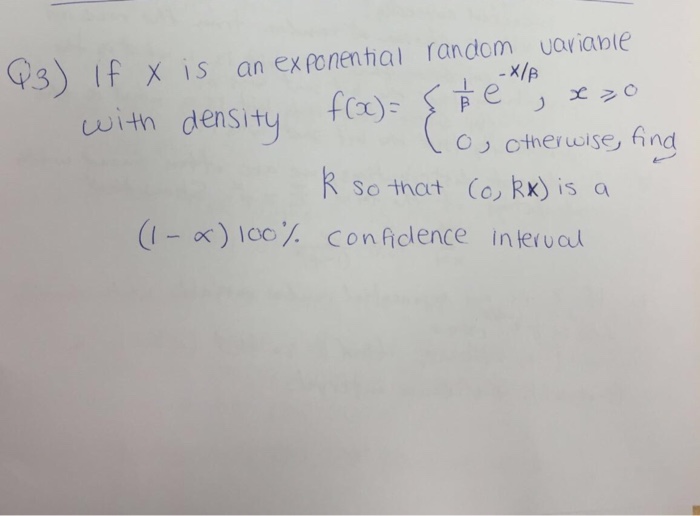 Q3) If X is an exponential random variable
with density f(x) = { 1/β e^-x/β, x ⩾ 0
0, otherwise, find
k so that (0, kx) is a
(1 - α) 100% confidence interval